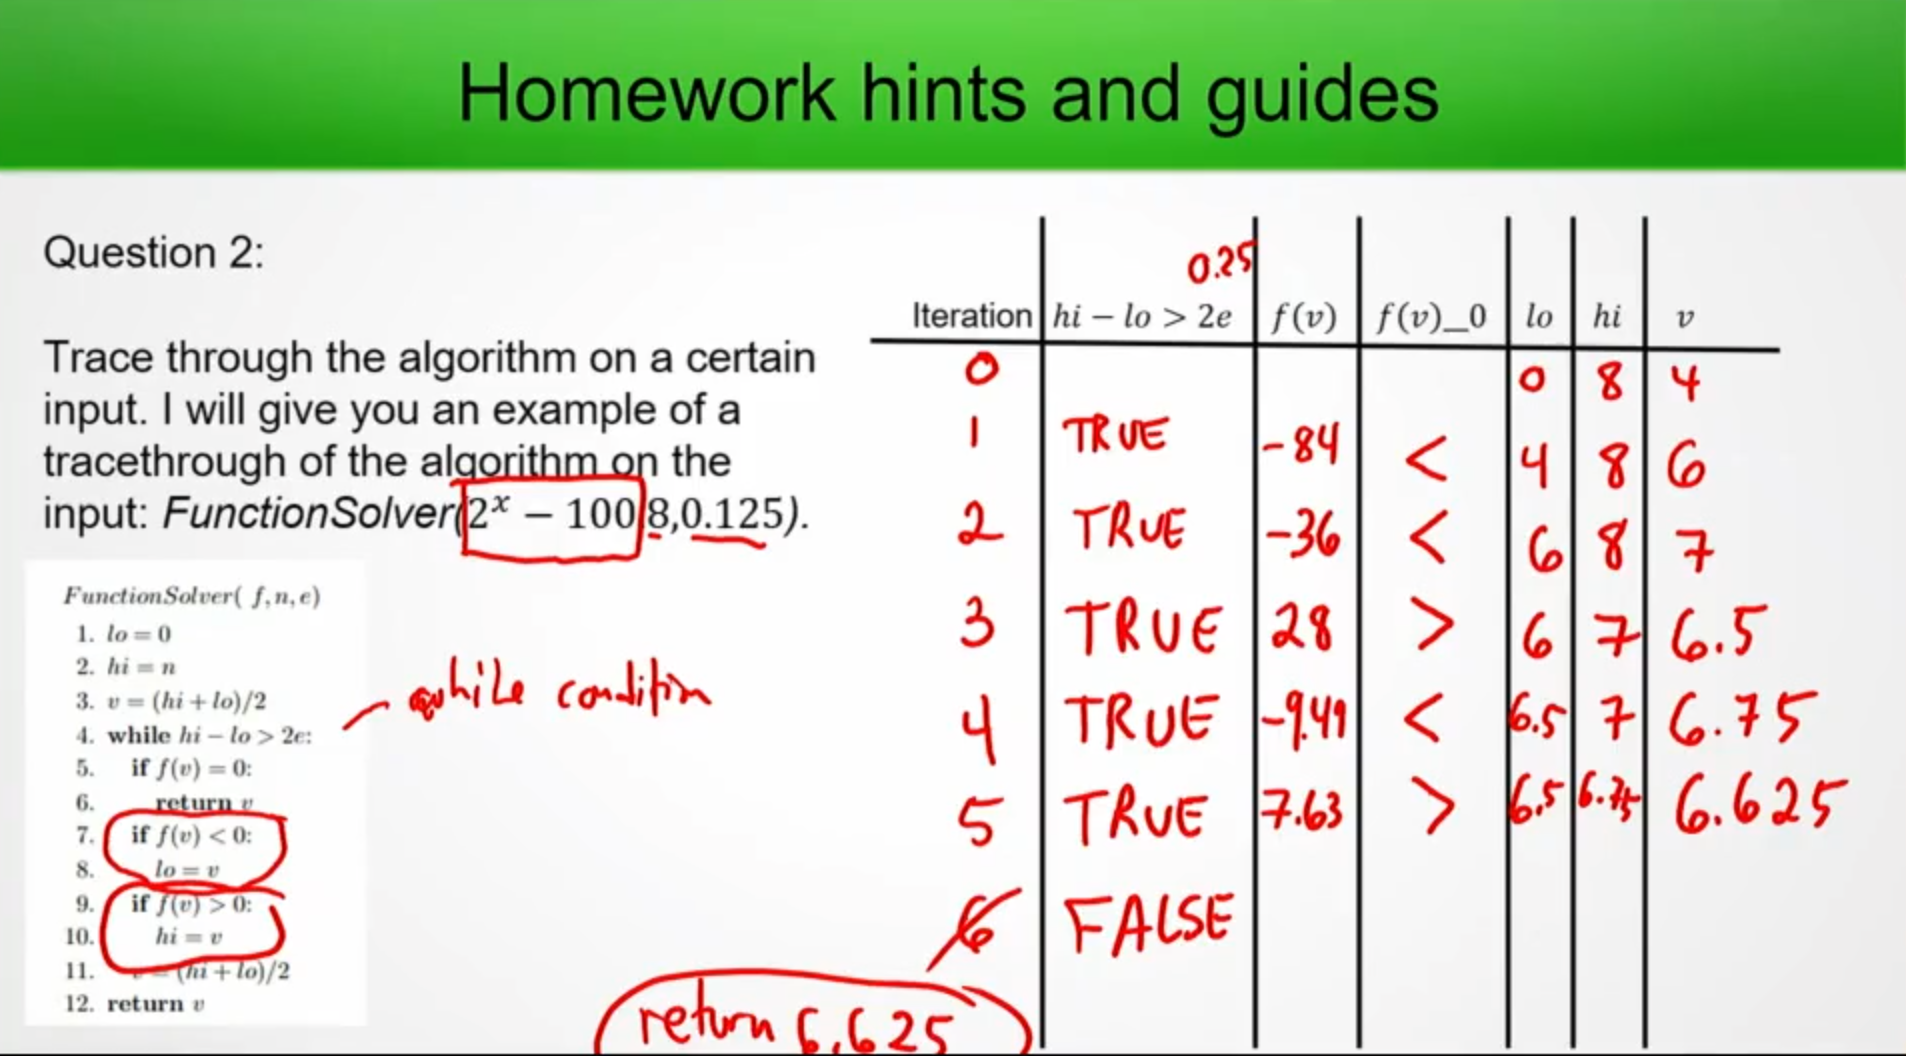 Homework hints and guides
Question 2:
Trace through the algorithm on a certain
input. I will give you an example of a
tracethrough of the algorithm on the
input: FunctionSolver(2ˣ − 100 8,0.125).
FunctionSolver( f, n, e)
1. lo = 0
2. hi = n
3. v = (hi + lo)/2
4. while hi − lo > 2e:
5. if f(v) = 0:
6. return v
7. if f(v) < 0:
8. lo = v
9. if f(v) > 0:
10. hi = v
11. v = (hi + lo)/2
12. return v
while condition
0.25
Iteration hi − lo > 2e f(v) f(v)_0 lo hi v
0 0 8 4
1 TRUE -84 < 4 8 6
2 TRUE -36 < 6 8 7
3 TRUE 28 > 6 7 6.5
4 TRUE -9.49 < 6.5 7 6.75
5 TRUE 7.63 > 6.5 6.75 6.625
6 FALSE
return 6.625